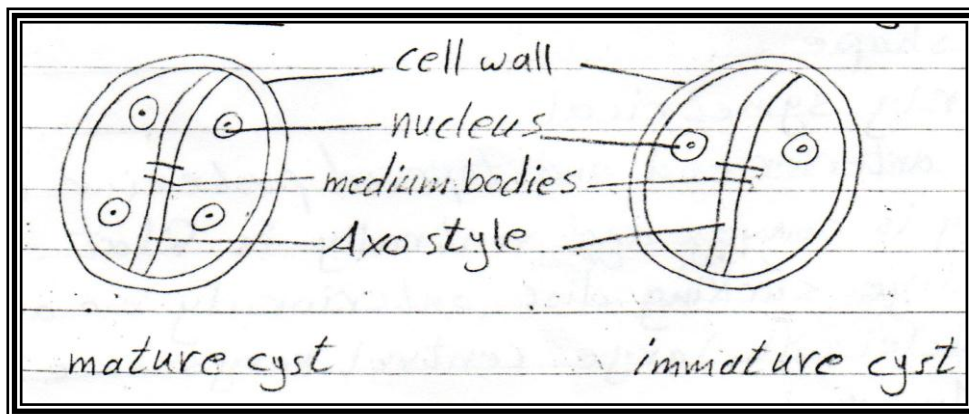 cell wall
nucleus
medium bodies
Axostyle
mature cyst
immature cyst